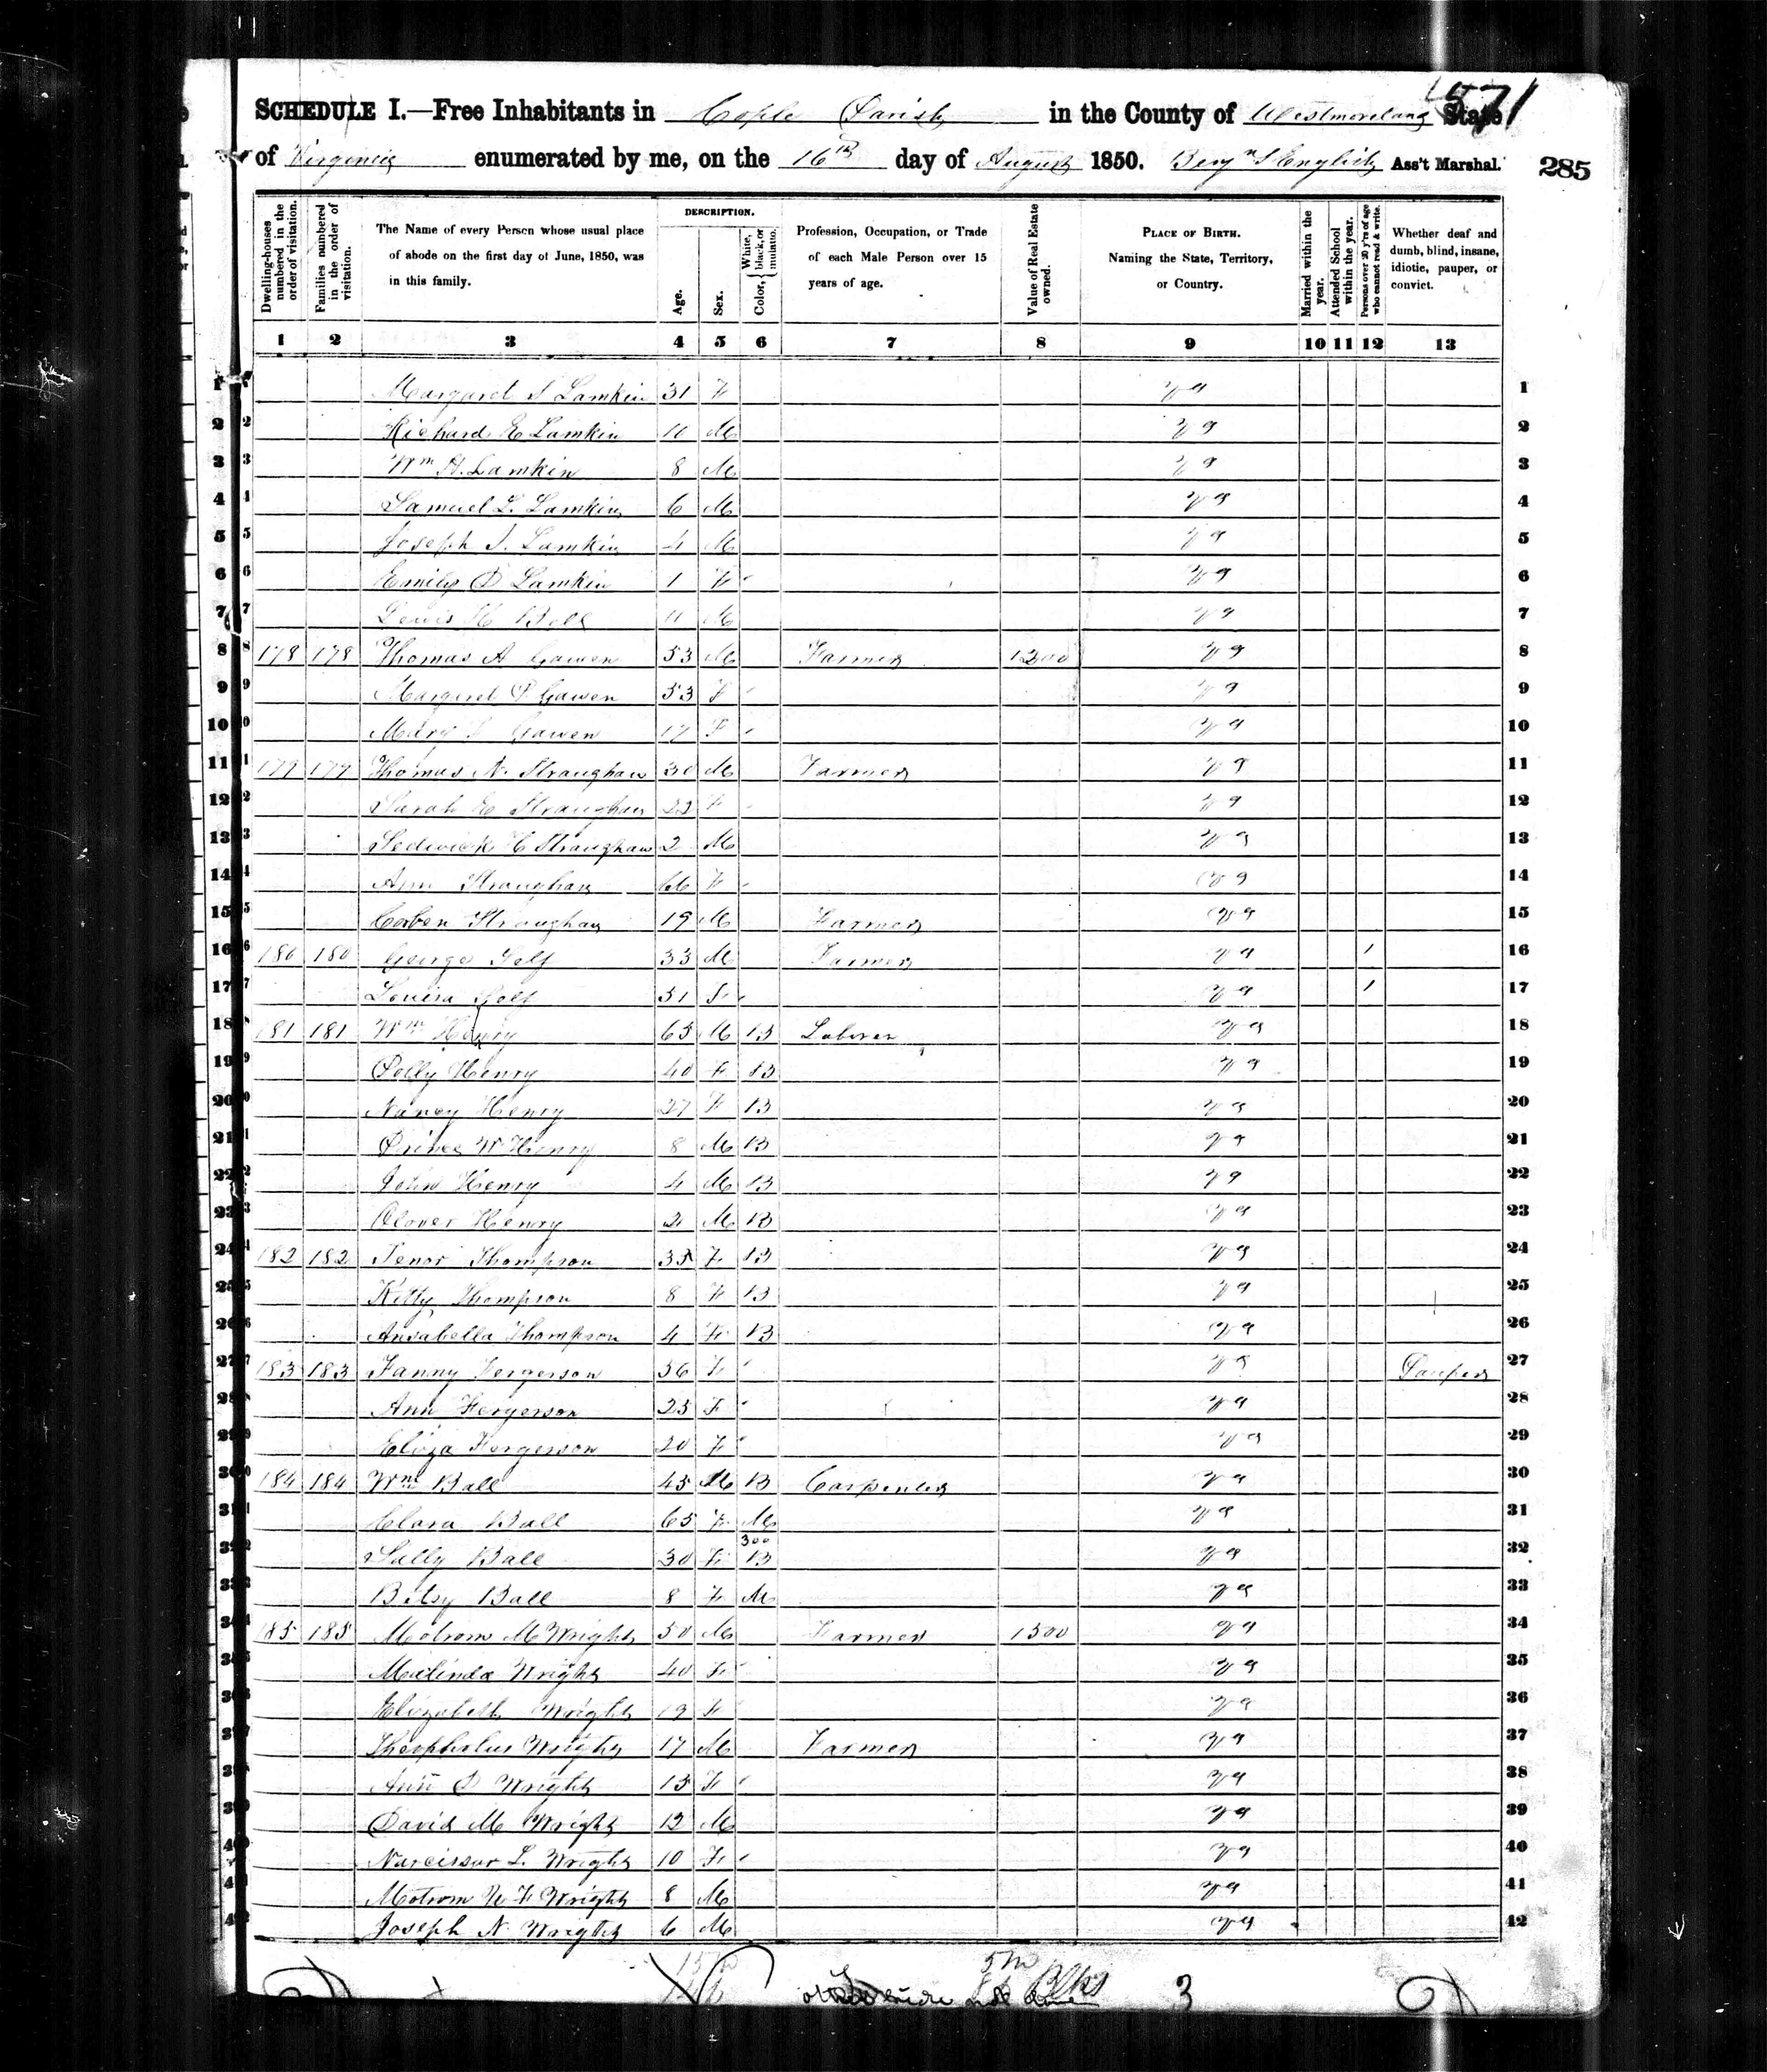 571
SCHEDULE I.—Free Inhabitants in Cople Parish in the County of Westmoreland State
of Virginia enumerated by me, on the 16th day of August 1850. Benjn S English Ass't Marshal. 285
Dwelling-houses numbered in the order of visitation. Families numbered in the order of visitation. The Name of every Person whose usual place of abode on the first day of June, 1850, was in this family. DESCRIPTION. Age. Sex. Color, { White, black, or mulatto. Profession, Occupation, or Trade of each Male Person over 15 years of age. Value of Real Estate owned. PLACE OF BIRTH. Naming the State, Territory, or Country. Married within the year. Attended School within the year. Persons over 20 y'rs of age who cannot read & write. Whether deaf and dumb, blind, insane, idiotic, pauper, or convict.
1 2 3 4 5 6 7 8 9 10 11 12 13
1 Margaret S Lamkin 31 F Va 1
2 Richard E Lamkin 10 M Va 2
3 Wm H. Lamkin 8 M Va 3
4 Samuel L. Lamkin 6 M Va 4
5 Joseph J. Lamkin 4 M Va 5
6 Emily P Lamkin 1 F Va 6
7 Lewis H Bell 11 M Va 7
8 178 178 Thomas A Gawen 53 M Farmer 1200 Va 8
9 Margaret P Gawen 53 F Va 9
10 Mary Gawen 17 F Va 10
11 179 179 Thomas N. Straughan 30 M Farmer Va 11
12 Sarah E Straughan 22 F Va 12
13 Sedwick H Straughan 2 M Va 13
14 Ann Straughan 66 F Va 14
15 Corben Straughan 19 M Farmer Va 15
16 180 180 George Self 33 M Farmer Va 1 16
17 Louisa Self 31 F Va 1 17
18 181 181 Wm Henry 65 M B Laborer Va 18
19 Polly Henry 40 F B Va 19
20 Nancy Henry 27 F B Va 20
21 Prince W Henry 8 M B Va 21
22 John Henry 4 M B Va 22
23 Henry 2 M B Va 23
24 182 182 Jenor Thompson 35 F B Va 24
25 Kitty Thompson 8 F B Va 25
26 Ansabella Thompson 4 F B Va 26
27 183 183 Fanny Fergerson 56 F Va Pauper 27
28 Ann Fergerson 25 F Va 28
29 Eliza Fergerson 20 F Va 29
30 184 184 Wm Ball 45 M B Carpenter Va 30
31 Clara Ball 65 F M Va 31
32 Sally Ball 30 F 300 B Va 32
33 Betsy Ball 8 F M Va 33
34 185 185 Motrom M Wright 50 M Farmer 1500 Va 34
35 Malinda Wright 40 F Va 35
36 Elizabeth Wright 19 F Va 36
37 Theopholus Wright 17 M Farmer Va 37
38 Ann D Wright 15 F Va 38
39 David M Wright 12 M Va 39
40 Narcissar L. Wright 10 F Va 40
41 Motrom F Wright 8 M Va 41
42 Joseph N Wright 6 M Va 42
Blks 3